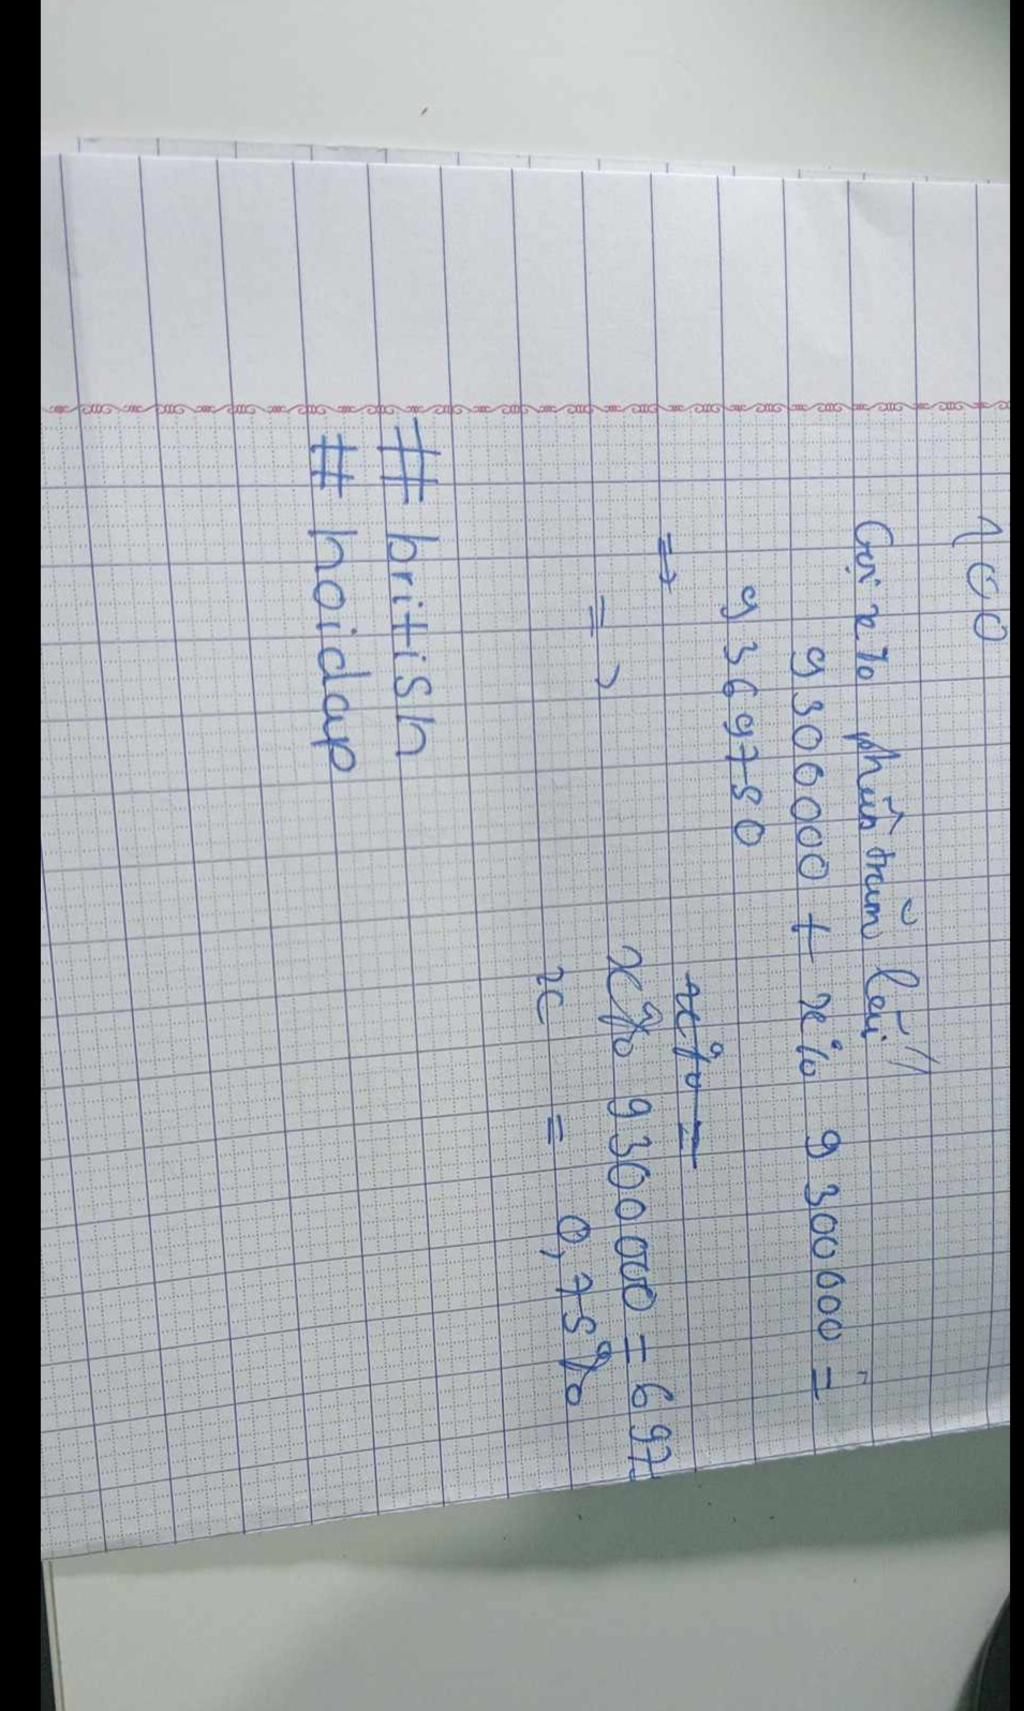 100
Gọi x% phần trăm lãi //
9300000 + x% 9300000 =
9369750
=> x% =
=> x% 9300000 = 697
x = 0,75%
# british
# hoidap